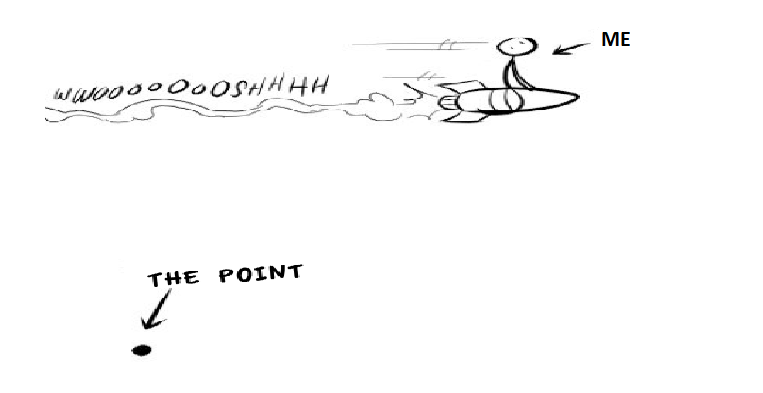 ME
WWOOOOOOOSHHHH
THE POINT